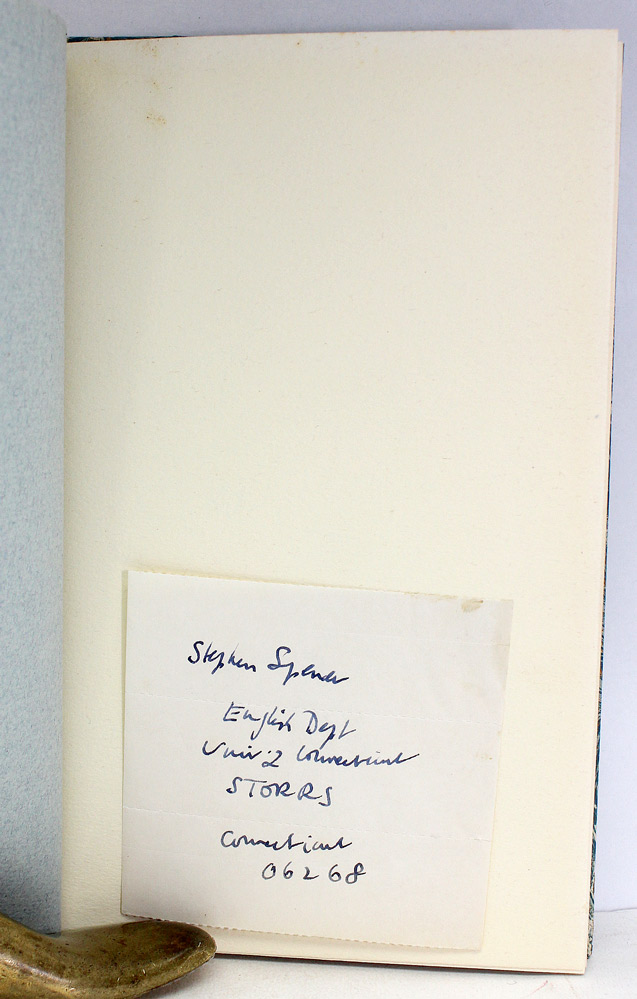 Stephen Spender
English Dept
Univ. of Connecticut
STORRS
Connecticut
06268